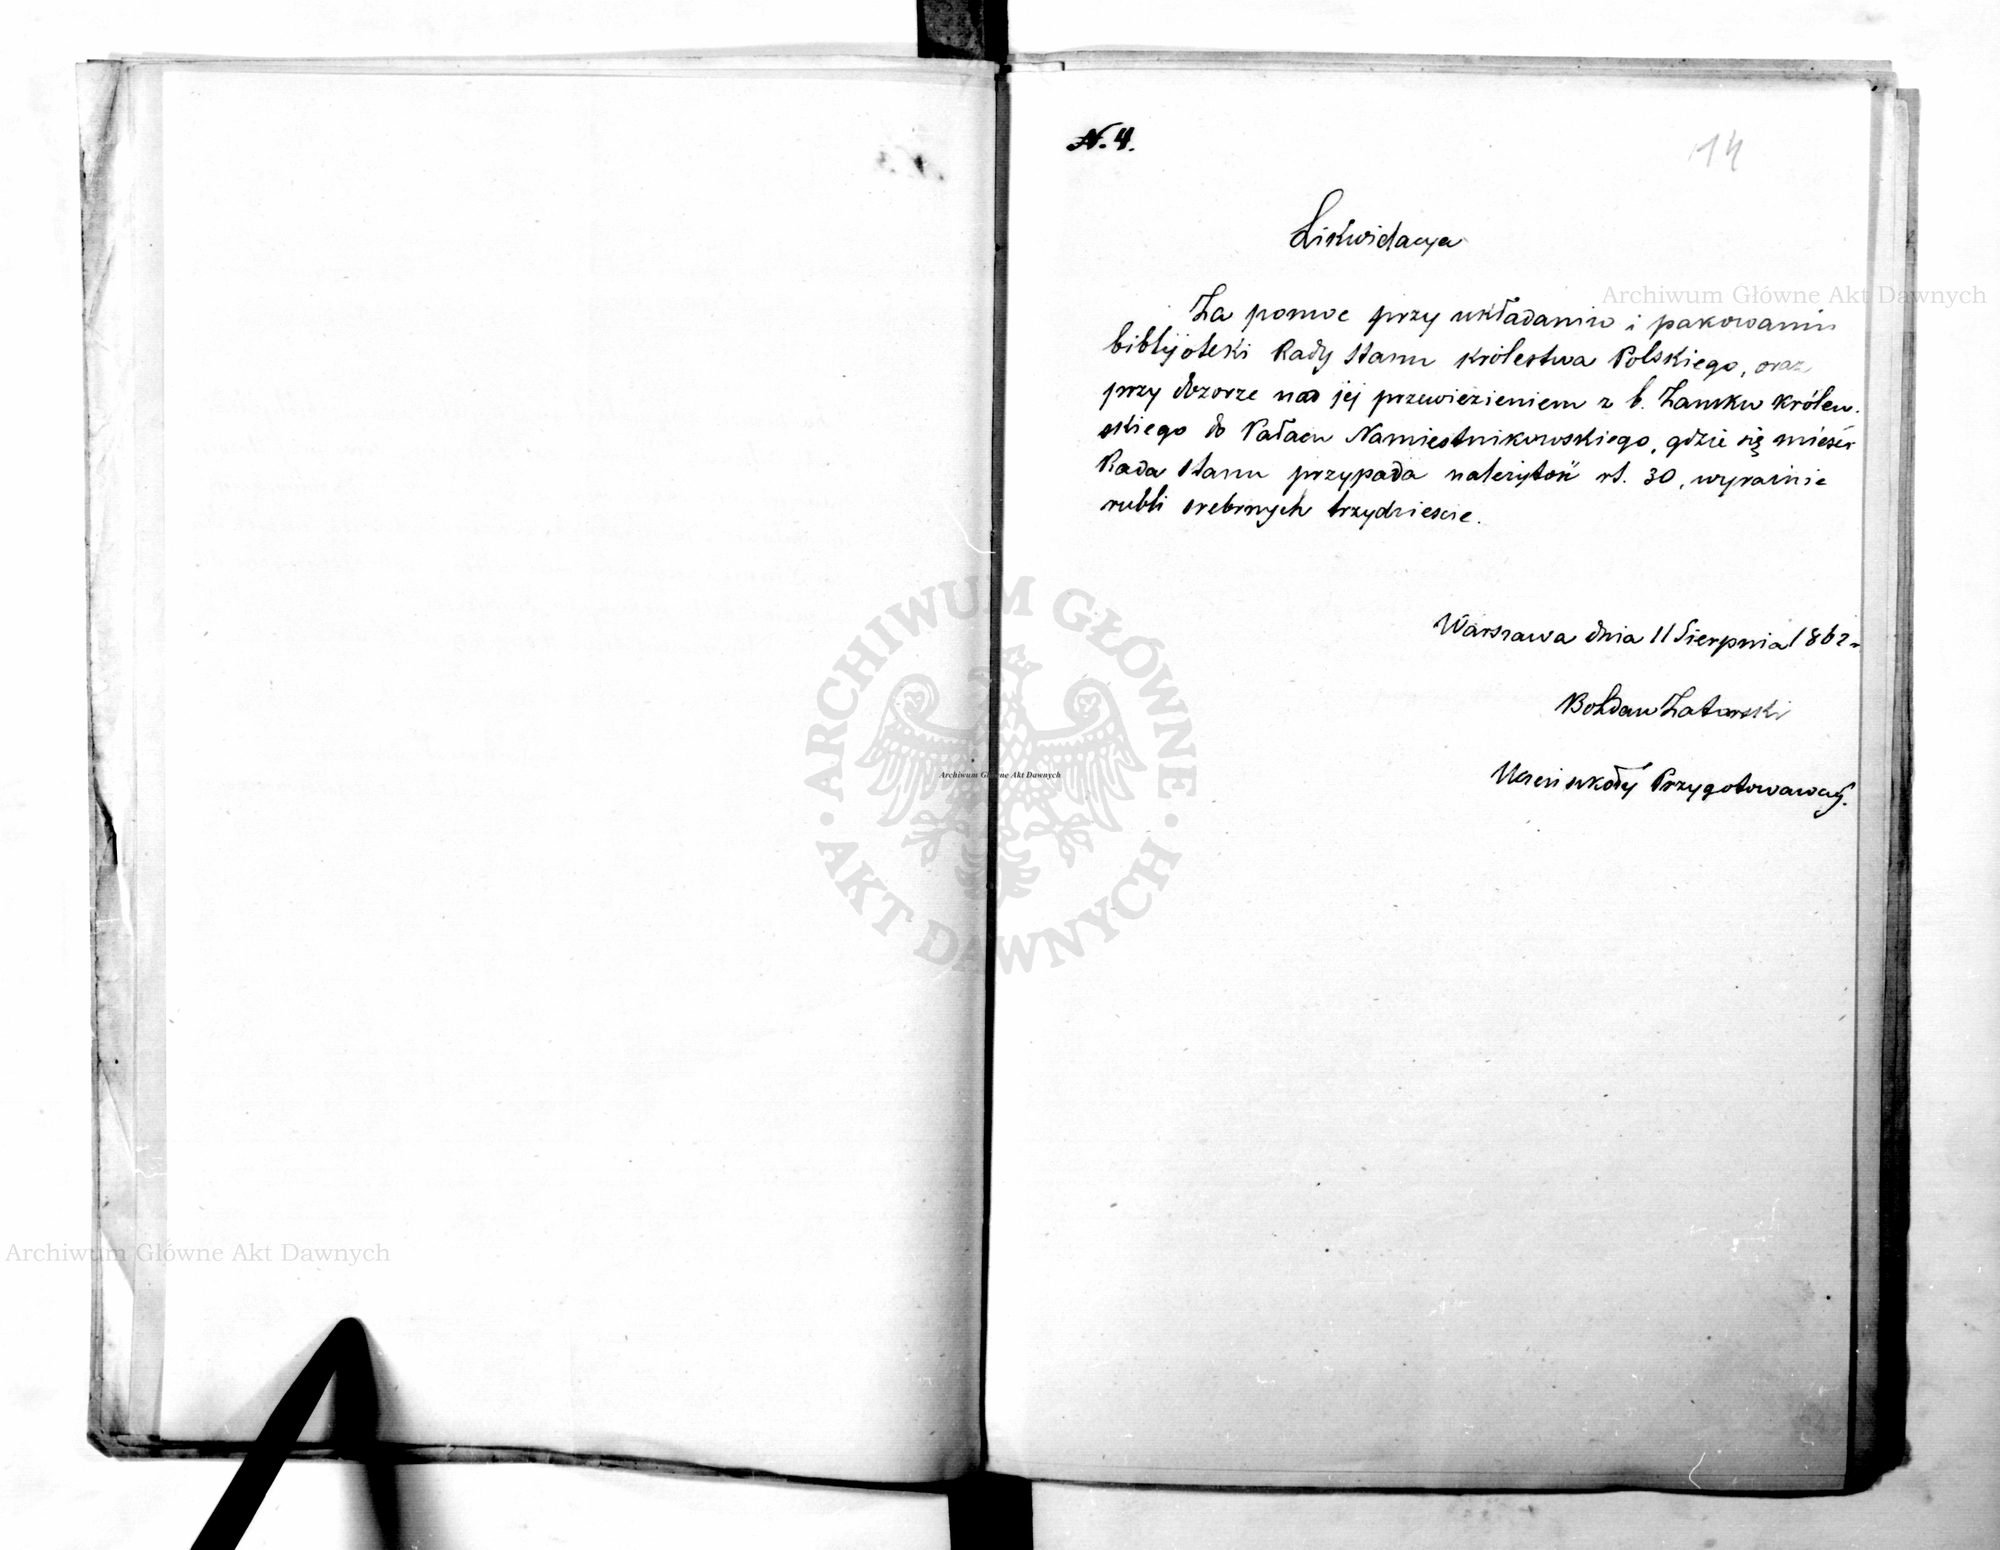 N. 4.
14
Likwidacya
Za pomoc przy układaniu i pakowaniu
biblijoteki Rady Stanu Królestwa Polskiego, oraz
przy dozorze nad jej przewiezieniem z b. Zamku Królew-
skiego do Pałacu Namiestnikowskiego, gdzie się mieści
Rada Stanu przypada należytość rs. 30, wyraźnie
rubli srebrnych trzydzieście.
Warszawa dnia 11 Sierpnia 1862 r.
Bohdan Zatorski
Uczeń szkoły Przygotowawczej.
Archiwum Główne Akt Dawnych
ARCHIWUM GŁÓWNE
AKT DAWNYCH
Archiwum Główne Akt Dawnych
Archiwum Główne Akt Dawnych